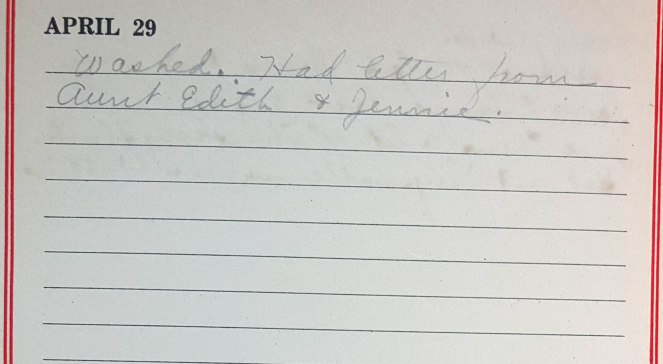 APRIL 29
Washed. Had letter from
Aunt Edith & Jennie.